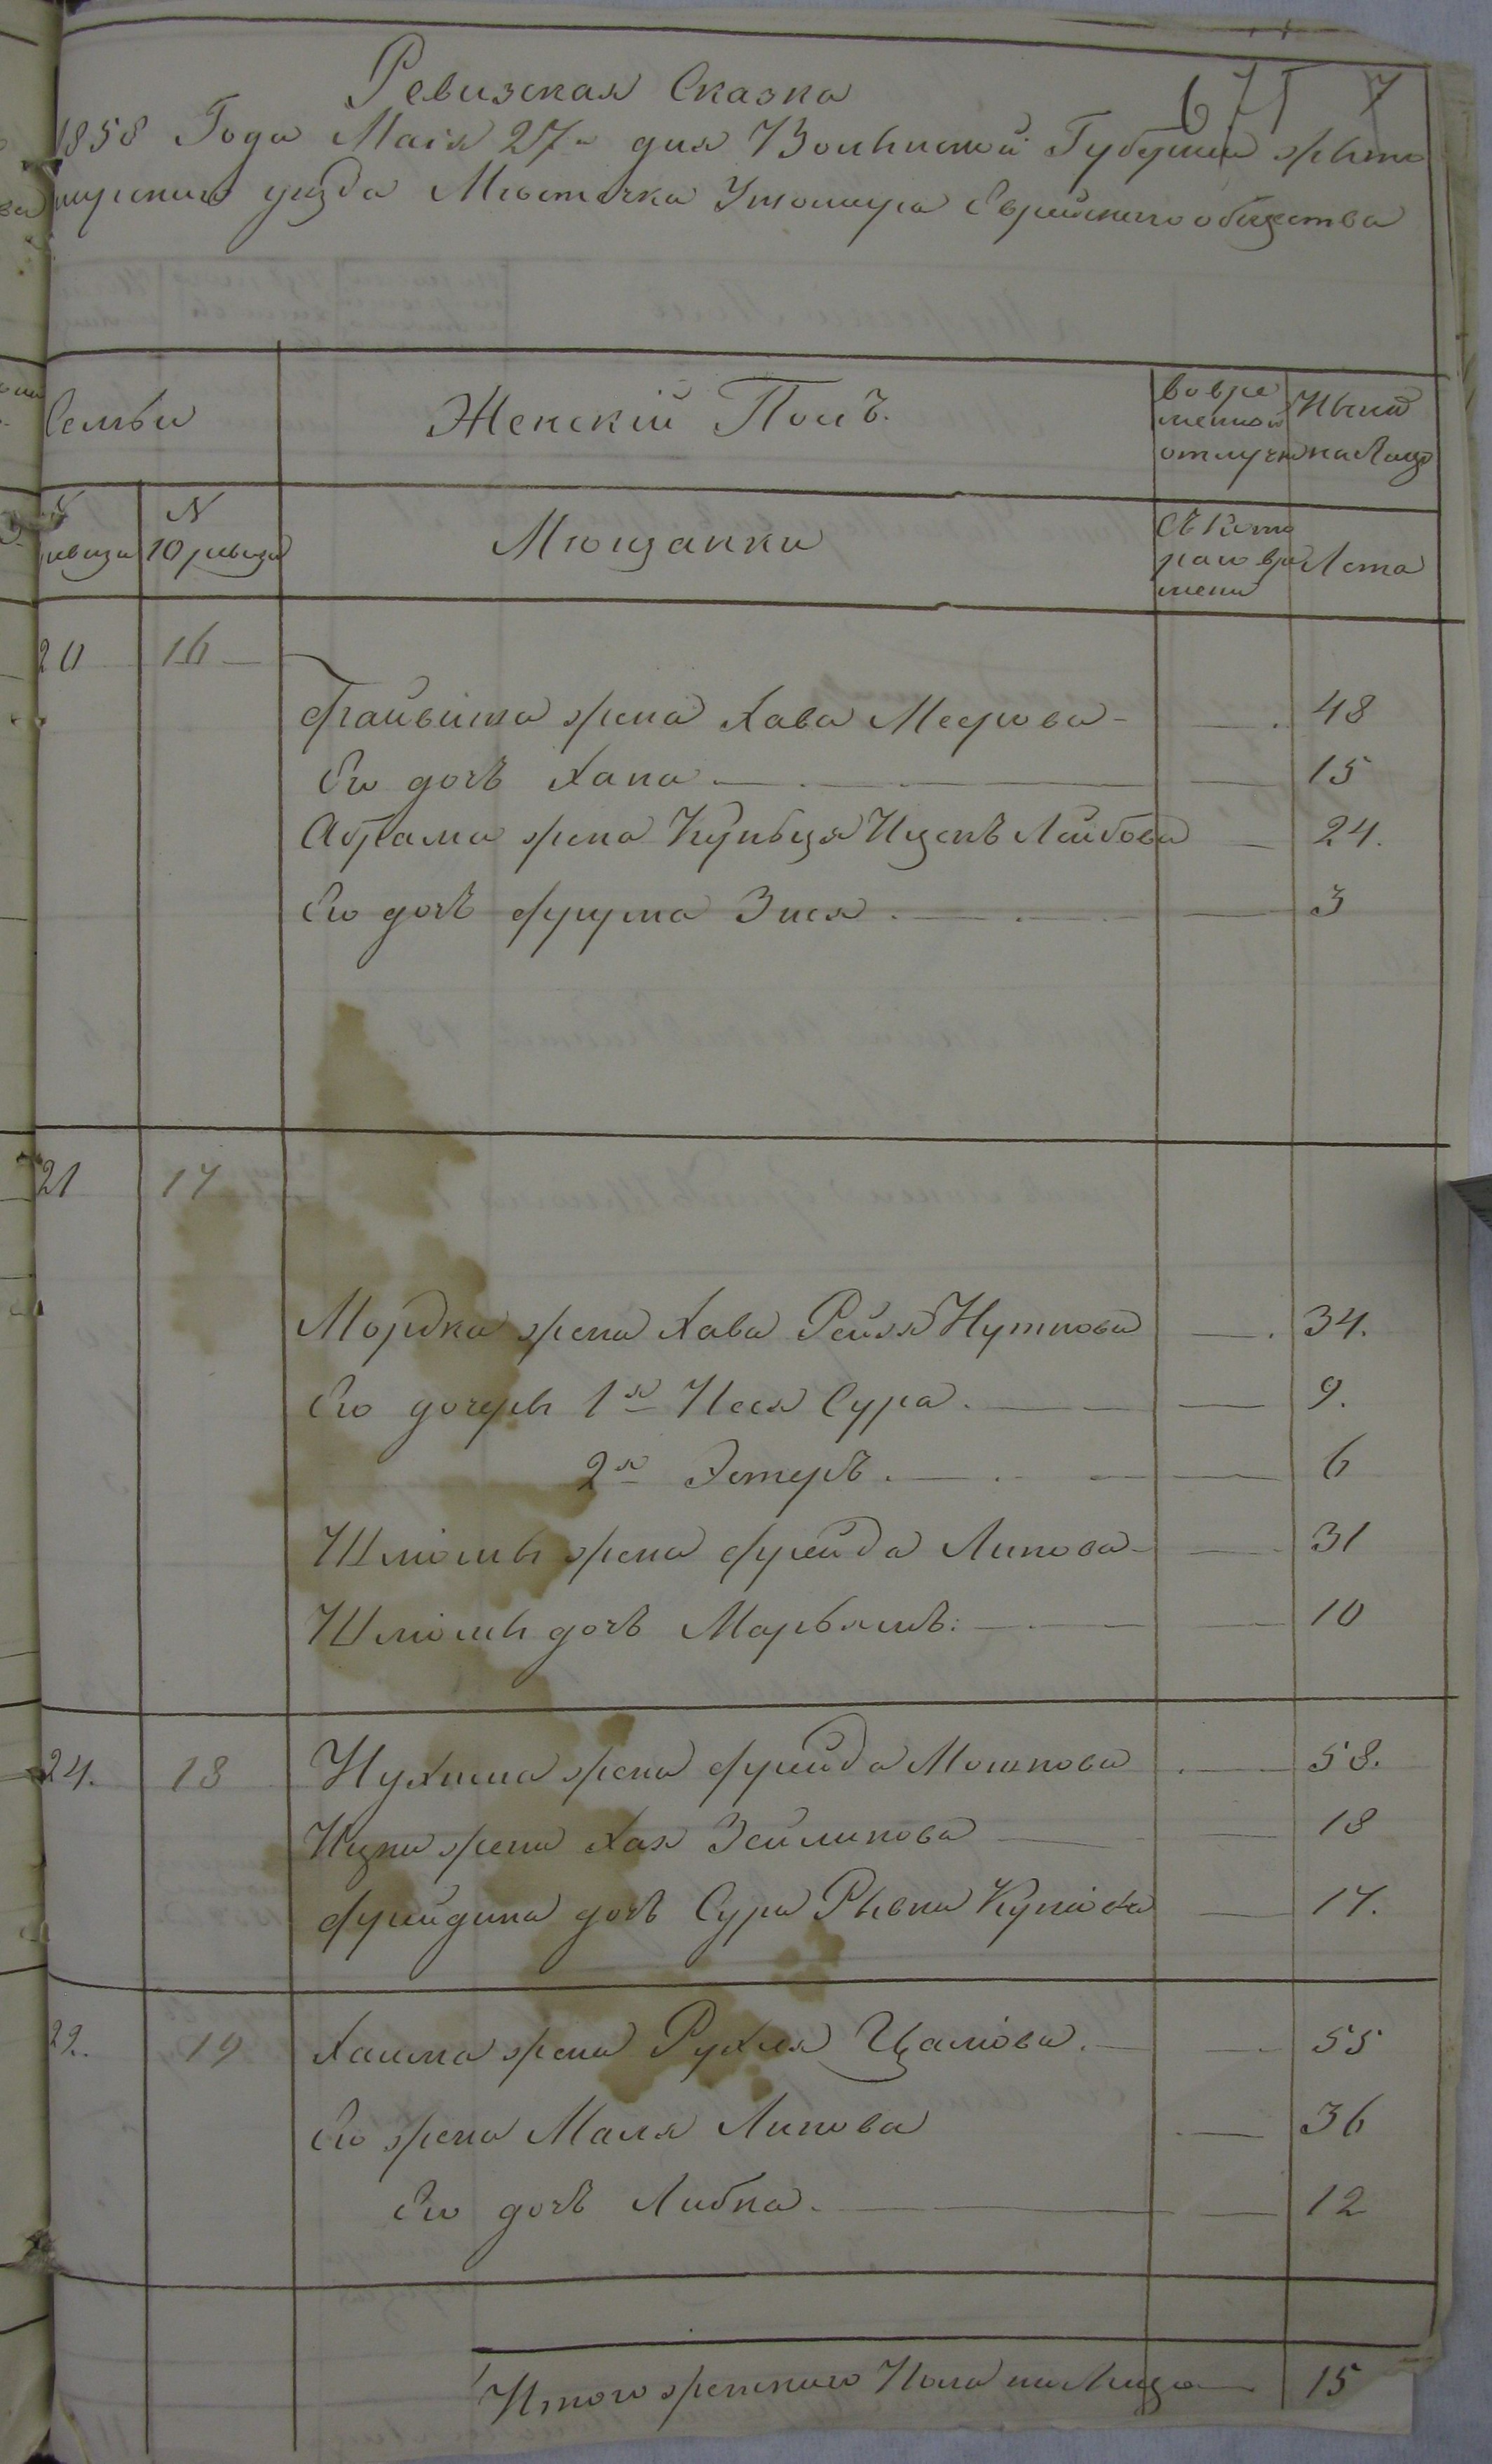 Ревизская Сказка
6 7 7
1858 Года Маія 27го дня Волынской Губерніи Жыто
мирскаго уезда Мѣстечка Ушомира Еврейскаго общества
Семьи
Женскій Полъ.
во вре
менной
отлучки
Ныни
на Лицо
ревизи
N
10 ревизи
Мющанки
Съ кото
раго вре
мени
Лета
20 16 Файвиша жена Хава Меерова 48
Его дочь Хана 15
Абрама жена Куньця Иценъ Лейбова 24.
Его дочъ Фрума Зися 3
21 17
Мордка жена Хава Рейзя Нутнова 34.
Его дочеры 1я Неся Сура. 9.
2я Эстеръ. 6
Шліомы жена Фрейда Липова 31
Шліомы дочъ Марьямъ. 10
24. 18 Нухима жена Фрейда Мошкова 58.
Ицки жена Хая Зейликова 18
Фрейдина дочъ Сура Рывка 17.
22. 19 Хаима жена Рухля Цаліова. 55
Его жена Маля Липова 36
Его дочъ Либка. 12
Итого женскаго Пола на Лицо 15